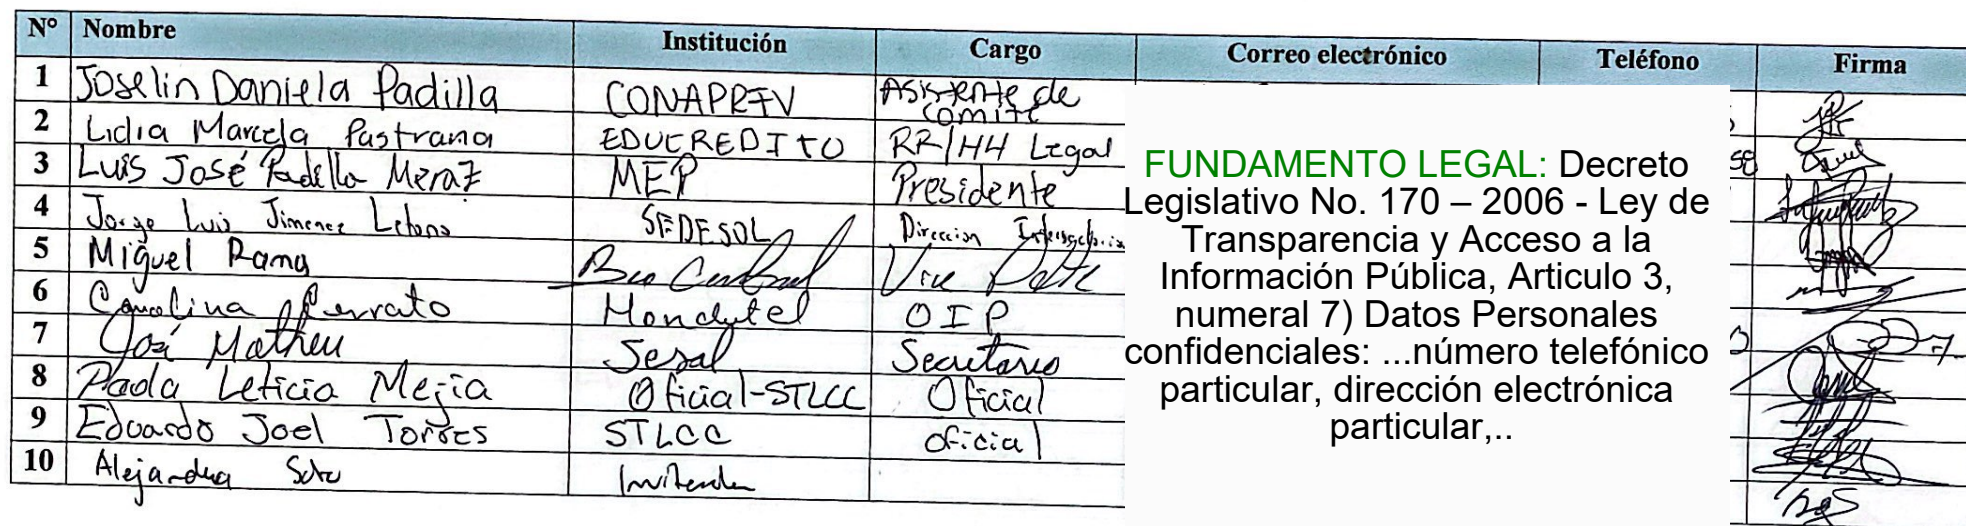 N° Nombre Institución Cargo Correo electrónico Teléfono Firma
1 Joselin Daniela Padilla CONAPREV Asistente de Comité
2 Lidia Marcela Pastrana EDUCREDITO RR/HH Legal
3 Luis José Padilla Meraz MEP Presidente
4 Jorge Luis Jimenez SEDESOL Direccion
5 Miguel Rama Bco Central Vice Pdte
6 Carolina Cerrato Hondutel OIP
7 José Matheu Sesal Secretario
8 Paola Leticia Mejia Oficial-STLCC Oficial
9 Eduardo Joel Torres STLCC oficial
10 Alejandra Soto
FUNDAMENTO LEGAL: Decreto
Legislativo No. 170 – 2006 - Ley de
Transparencia y Acceso a la
Información Pública, Articulo 3,
numeral 7) Datos Personales
confidenciales: ...número telefónico
particular, dirección electrónica
particular,..